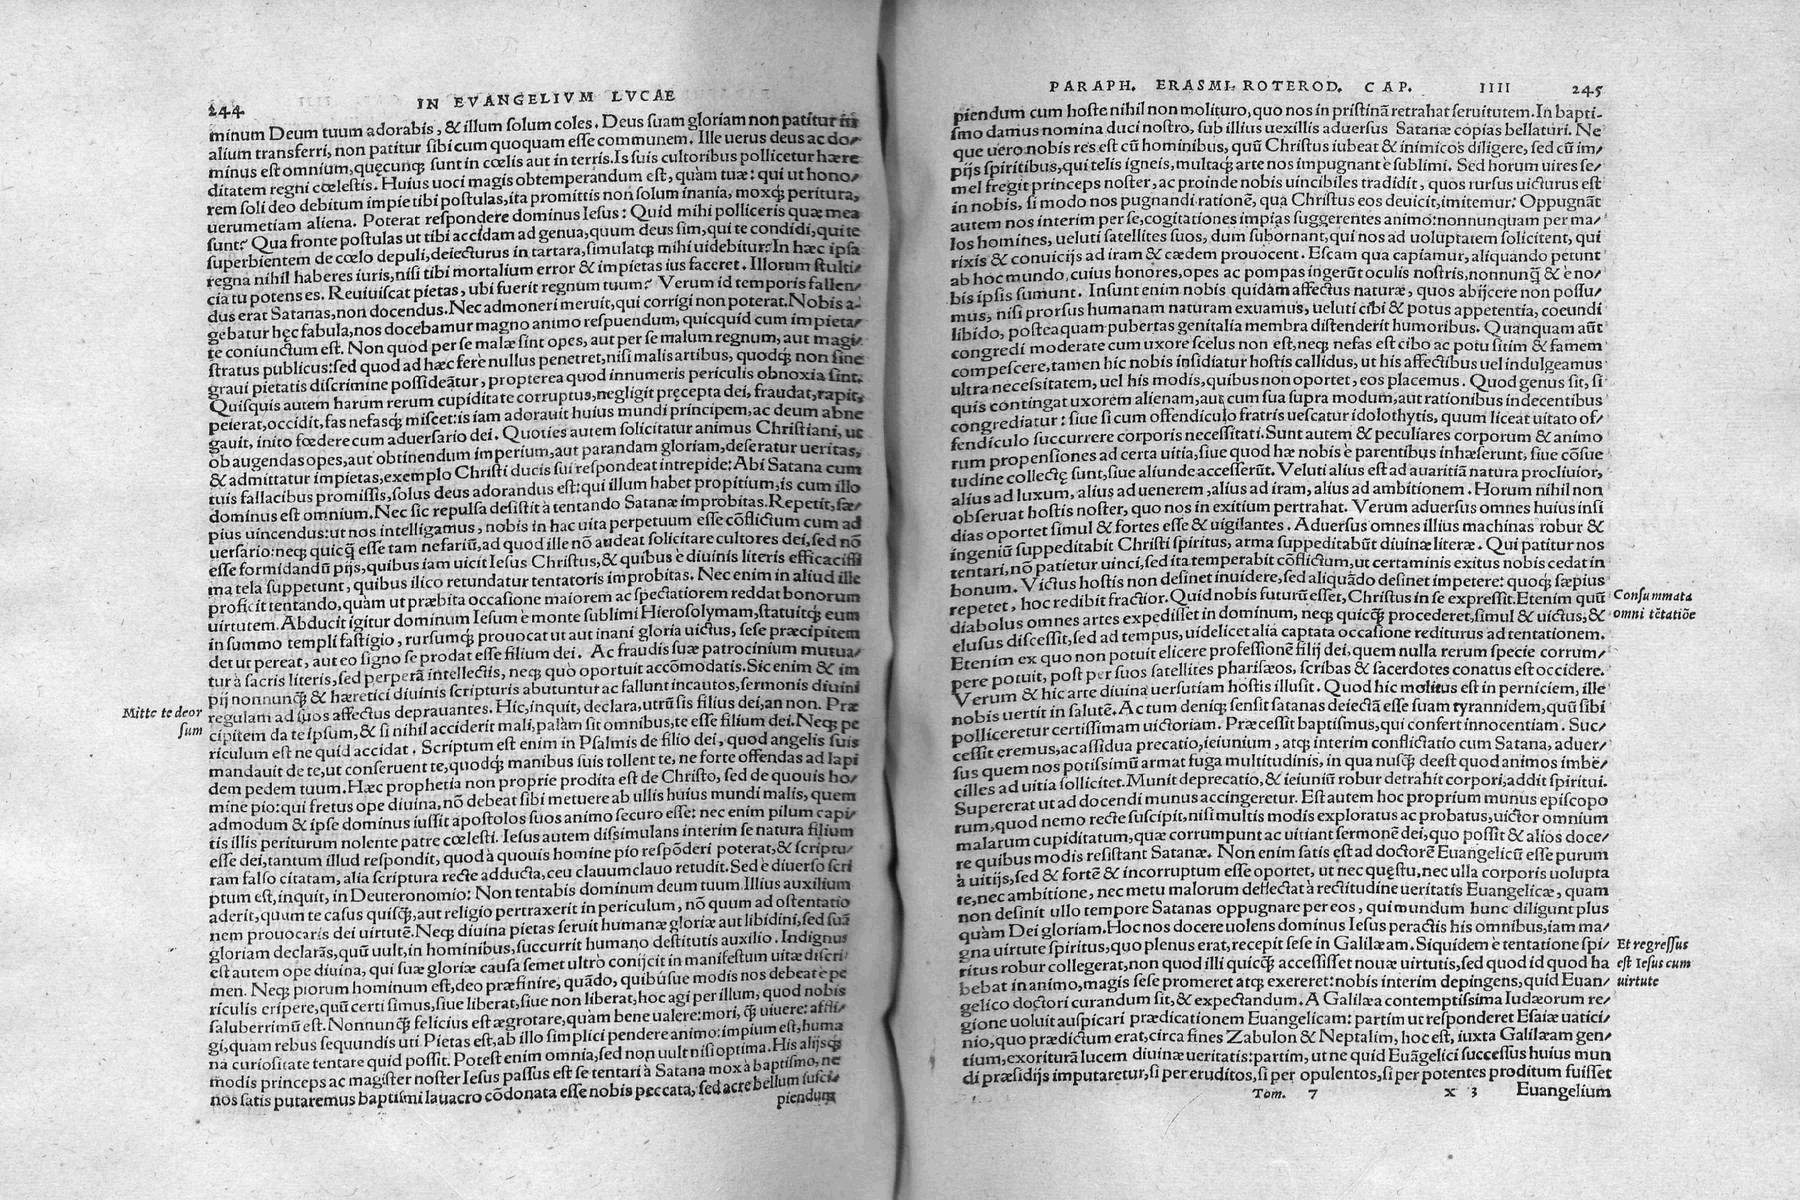 244 IN EVANGELIVM LVCAE
minum Deum tuum adorabis, & illum solum coles. Deus suam gloriam non patitur in
alium transferri, non patitur sibi cum quoquam esse communem. Ille uerus deus ac do-
minus est omnium, quęcunq; sunt in cœlis aut in terris. Is suis cultoribus pollicetur hære
ditatem regni cœlestis. Huius uoci magis obtemperandum est, quàm tuæ: qui ut hono-
rem soli deo debitum impie tibi postulas, ita promittis non solum inania, moxq; peritura,
uerumetiam aliena. Poterat respondere dominus Iesus: Quid mihi polliceris quæ mea
sunt? Qua fronte postulas ut tibi accidam ad genua, quum deus sim, qui te condidi, qui te
superbientem de cœlo depuli, deiecturus in tartara, simulatq; mihi uidebitur? In hæc ipsa
regna nihil haberes iuris, nisi tibi mortalium error & impietas ius faceret. Illorum stulti-
cia tu potens es. Reuiuiscat pietas, ubi fuerit regnum tuum? Verum id temporis fallen-
dus erat Satanas, non docendus. Nec admoneri meruit, qui corrigi non poterat. Nobis a-
gebatur hęc fabula, nos docebamur magno animo respuendum, quicquid cum impieta-
te coniunctum est. Non quod per se malæ sint opes, aut per se malum regnum, aut magi-
stratus publicus: sed quod ad hæc ferè nullus penetret, nisi malis artibus, quodq; non sine
graui pietatis discrimine possideãtur, propterea quod innumeris periculis obnoxia sint.
Quisquis autem harum rerum cupiditate corruptus, negligit pręcepta dei, fraudat, rapit,
peierat, occidit, fas nefasq; miscet: is iam adorauit huius mundi principem, ac deum abne
gauit, inito fœdere cum aduersario dei. Quoties autem solicitatur animus Christiani, ut
ob augendas opes, aut obtinendum imperium, aut parandam gloriam, deseratur ueritas,
& admittatur impietas, exemplo Christi ducis sui respondeat intrepide: Abi Satana cum
tuis fallacibus promissis, solus deus adorandus est: qui illum habet propitium, is cum illo
dominus est omnium. Nec sic repulsa desistit à tentando Satanæ improbitas. Repetit, sæ-
pius uincendus: ut nos intelligamus, nobis in hac uita perpetuum esse cõflictum cum ad
uersario: neq; quicq̃ esse tam nefariũ, ad quod ille nõ audeat solicitare cultores dei, sed nõ
esse formidandũ pijs, quibus iam uicit Iesus Christus, & quibus è diuinis literis efficacissi
ma tela suppetunt, quibus ilico retundatur tentatoris improbitas. Nec enim in aliud ille
proficit tentando, quàm ut præbita occasione maiorem ac spectatiorem reddat bonorum
uirtutem. Abducit igitur dominum Iesum è monte sublimi Hierosolymam, statuitq; eum
in summo templi fastigio, rursumq; prouocat ut aut inani gloria uictus, sese præcipitem
det ut pereat, aut eo signo se prodat esse filium dei. Ac fraudis suæ patrocinium mutua-
tur à sacris literis, sed perperã intellectis, neq; quò oportuit accõmodatis. Sic enim & im
pij nonnunq̃ & hæretici diuinis scripturis abutuntur ac fallunt incautos, sermonis diuini
Mitte te deor regulam ad suos affectus deprauantes. Hic, inquit, declara, utrũ sis filius dei, an non. Præ
sum cipitem da te ipsum, & si nihil acciderit mali, palàm sit omnibus, te esse filium dei. Neq; pe
riculum est ne quid accidat. Scriptum est enim in Psalmis de filio dei, quod angelis suis
mandauit de te, ut conseruent te, quodq; manibus suis tollent te, ne forte offendas ad lapi
dem pedem tuum. Hæc prophetia non proprie prodita est de Christo, sed de quouis ho-
mine pio: qui fretus ope diuina, nõ debeat sibi metuere ab ullis huius mundi malis, quem
admodum & ipse dominus iussit apostolos suos animo securo esse: nec enim pilum capi-
tis illis periturum nolente patre cœlesti. Iesus autem dissimulans interim se natura filium
esse dei, tantum illud respondit, quod à quouis homine pio respõderi poterat, & scriptu-
ram falso citatam, alia scriptura recte adducta, ceu clauum clauo retudit. Sed è diuerso scri
ptum est, inquit, in Deuteronomio: Non tentabis dominum deum tuum. Illius auxilium
aderit, quum te casus quisq̃, aut religio pertraxerit in periculum, nõ quum ad ostentatio
nem prouocaris dei uirtutẽ. Neq; diuina pietas seruit humanæ gloriæ aut libidini, sed suã
gloriam declarãs, quũ uult, in hominibus, succurrit humano destitutis auxilio. Indignus
est autem ope diuina, qui suæ gloriæ causa semet ultrò conijcit in manifestum uitæ discri-
men. Neq; piorum hominum est, deo præfinire, quãdo, quibúsue modis nos debeat è pe
riculis eripere, quũ certi simus, siue liberat, siue non liberat, hoc agi per illum, quod nobis
saluberrimũ est. Nonnunq̃ felicius est ægrotare, quàm bene ualere: mori, q̃ uiuere: affli-
gi, quam rebus sequundis uti. Pietas est, ab illo simplici pendere animo: impium est, huma
na curiositate tentare quid possit. Potest enim omnia, sed non uult nisi optima. His alijsq;
modis princeps ac magister noster Iesus passus est se tentari à Satana mox à baptismo, ne
nos satis putaremus baptismi lauacro cõdonata esse nobis peccata, sed acre bellum susci-
piendum
PARAPH. ERASMI ROTEROD. CAP. IIII 245
piendum cum hoste nihil non molituro, quo nos in pristinã retrahat seruitutem. In bapti-
smo damus nomina duci nostro, sub illius uexillis aduersus Satanæ copias bellaturi. Ne
que uero nobis res est cũ hominibus, quũ Christus iubeat & inimicos diligere, sed cũ im-
pijs spiritibus, qui telis igneis, multaq; arte nos impugnant è sublimi. Sed horum uires se-
mel fregit princeps noster, ac proinde nobis uincibiles tradidit, quos rursus uicturus est
in nobis, si modo nos pugnandi rationẽ, qua Christus eos deuicit, imitemur. Oppugnãt
autem nos interim per se, cogitationes impias suggerentes animo: nonnunquam per ma-
los homines, ueluti satellites suos, dum subornant, qui nos ad uoluptatem solicitent, qui
rixis & conuicijs ad iram & cædem prouocent. Escam qua capiamur, aliquando petunt
ab hoc mundo, cuius honores, opes ac pompas ingerũt oculis nostris, nonnunq̃ & è no-
bis ipsis sumunt. Insunt enim nobis quidam affectus naturæ, quos abijcere non possu-
mus, nisi prorsus humanam naturam exuamus, ueluti cibi & potus appetentia, coeundi
libido, posteaquam pubertas genitalia membra distenderit humoribus. Quanquam aũt
congredi moderate cum uxore scelus non est, neq; nefas est cibo ac potu sitim & famem
compescere, tamen hic nobis insidiatur hostis callidus, ut his affectibus uel indulgeamus
ultra necessitatem, uel his modis, quibus non oportet, eos placemus. Quod genus sit, si
quis contingat uxorem alienam, aut cum sua supra modum, aut rationibus indecentibus
congrediatur: siue si cum offendiculo fratris uescatur idolothytis, quum liceat uitato of-
fendiculo succurrere corporis necessitati. Sunt autem & peculiares corporum & animo
rum propensiones ad certa uitia, siue quod hæ nobis è parentibus inhæserunt, siue cõsue
tudine collectę sunt, siue aliunde accesserũt. Veluti alius est ad auaritiã natura procliuior,
alius ad luxum, alius ad uenerem, alius ad iram, alius ad ambitionem. Horum nihil non
obseruat hostis noster, quo nos in exitium pertrahat. Verum aduersus omnes huius insi
dias oportet simul & fortes esse & uigilantes. Aduersus omnes illius machinas robur &
ingeniũ suppeditabit Christi spiritus, arma suppeditabũt diuinæ literæ. Qui patitur nos
tentari, nõ patietur uinci, sed ita temperabit cõflictum, ut certaminis exitus nobis cedat in
bonum. Victus hostis non desinet inuidere, sed aliquãdo desinet impetere: quoq; sæpius
repetet, hoc redibit fractior. Quid nobis futurũ esset, Christus in se expressit. Etenim quũ Consummata
diabolus omnes artes expedisset in dominum, neq; quicq̃ procederet, simul & uictus, & omni tẽtatiõe
elusus discessit, sed ad tempus, uidelicet alia captata occasione rediturus ad tentationem.
Etenim ex quo non potuit elicere professionẽ filij dei, quem nulla rerum specie corrum-
pere potuit, post per suos satellites pharisæos, scribas & sacerdotes conatus est occidere.
Verum & hic arte diuina uersutiam hostis illusit. Quod hic molitus est in perniciem, ille
nobis uertit in salutẽ. Actum deniq; sensit satanas deiectã esse suam tyrannidem, quũ sibi
polliceretur certissimam uictoriam. Præcessit baptismus, qui confert innocentiam. Suc-
cessit eremus, ac assidua precatio, ieiunium, atq; interim conflictatio cum Satana, aduer-
sus quem nos potissimũ armat fuga multitudinis, in qua nusq̃ deest quod animos imbe-
cilles ad uitia sollicitet. Munit deprecatio, & ieiuniũ robur detrahit corpori, addit spiritui.
Supererat ut ad docendi munus accingeretur. Est autem hoc proprium munus episcopo
rum, quod nemo recte suscipit, nisi multis modis exploratus ac probatus, uictor omnium
malarum cupiditatum, quæ corrumpunt ac uitiant sermonẽ dei, quo possit & alios doce-
re quibus modis resistant Satanæ. Non enim satis est ad doctorẽ Euangelicũ esse purum
à uitijs, sed & fortẽ & incorruptum esse oportet, ut nec quęstu, nec ulla corporis uolupta
te, nec ambitione, nec metu malorum deflectat à rectitudine ueritatis Euangelicæ, quam
non desinit ullo tempore Satanas oppugnare per eos, qui mundum hunc diligunt plus
quàm Dei gloriam. Hoc nos docere uolens dominus Iesus peractis his omnibus, iam ma-
gna uirtute spiritus, quo plenus erat, recepit sese in Galilæam. Siquidem è tentatione spi- Et regressus
ritus robur collegerat, non quod illi quicq̃ accessisset nouæ uirtutis, sed quod id quod ha est Iesus cum
bebat in animo, magis sese promeret atq; exereret: nobis interim depingens, quid Euan- uirtute
gelico doctori curandum sit, & expectandum. A Galilæa contemptissima Iudæorum re-
gione uoluit auspicari prædicationem Euangelicam: partim ut responderet Esaiæ uatici-
nio, quo prædictum erat, circa fines Zabulon & Neptalim, hoc est, iuxta Galilæam gen-
tium, exorituram lucem diuinæ ueritatis: partim, ut ne quid Euãgelici successus huius mun
di præsidijs imputaretur, si per eruditos, si per opulentos, si per potentes proditum fuisset
Tom. 7 x 3 Euangelium